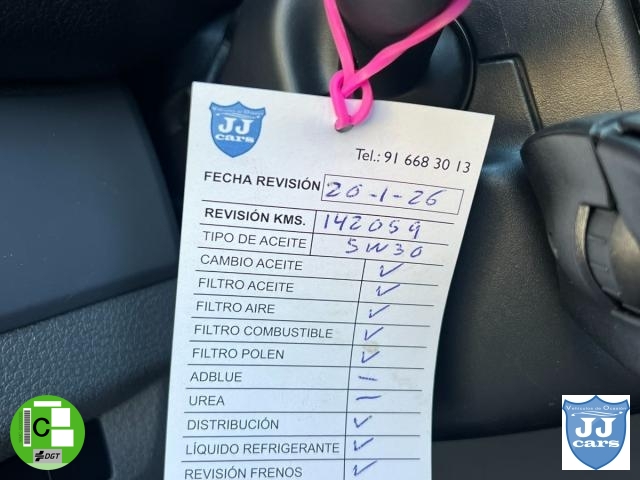 Vehículos de Ocasión
JJ
cars
Tel.: 91 668 30 13
FECHA REVISIÓN 20-1-26
REVISIÓN KMS. 142059
TIPO DE ACEITE 5W30
CAMBIO ACEITE ✓
FILTRO ACEITE ✓
FILTRO AIRE ✓
FILTRO COMBUSTIBLE ✓
FILTRO POLEN ✓
ADBLUE —
UREA —
DISTRIBUCIÓN ✓
LÍQUIDO REFRIGERANTE ✓
REVISIÓN FRENOS ✓
C
DGT
Vehículos de Ocasión
JJ
cars